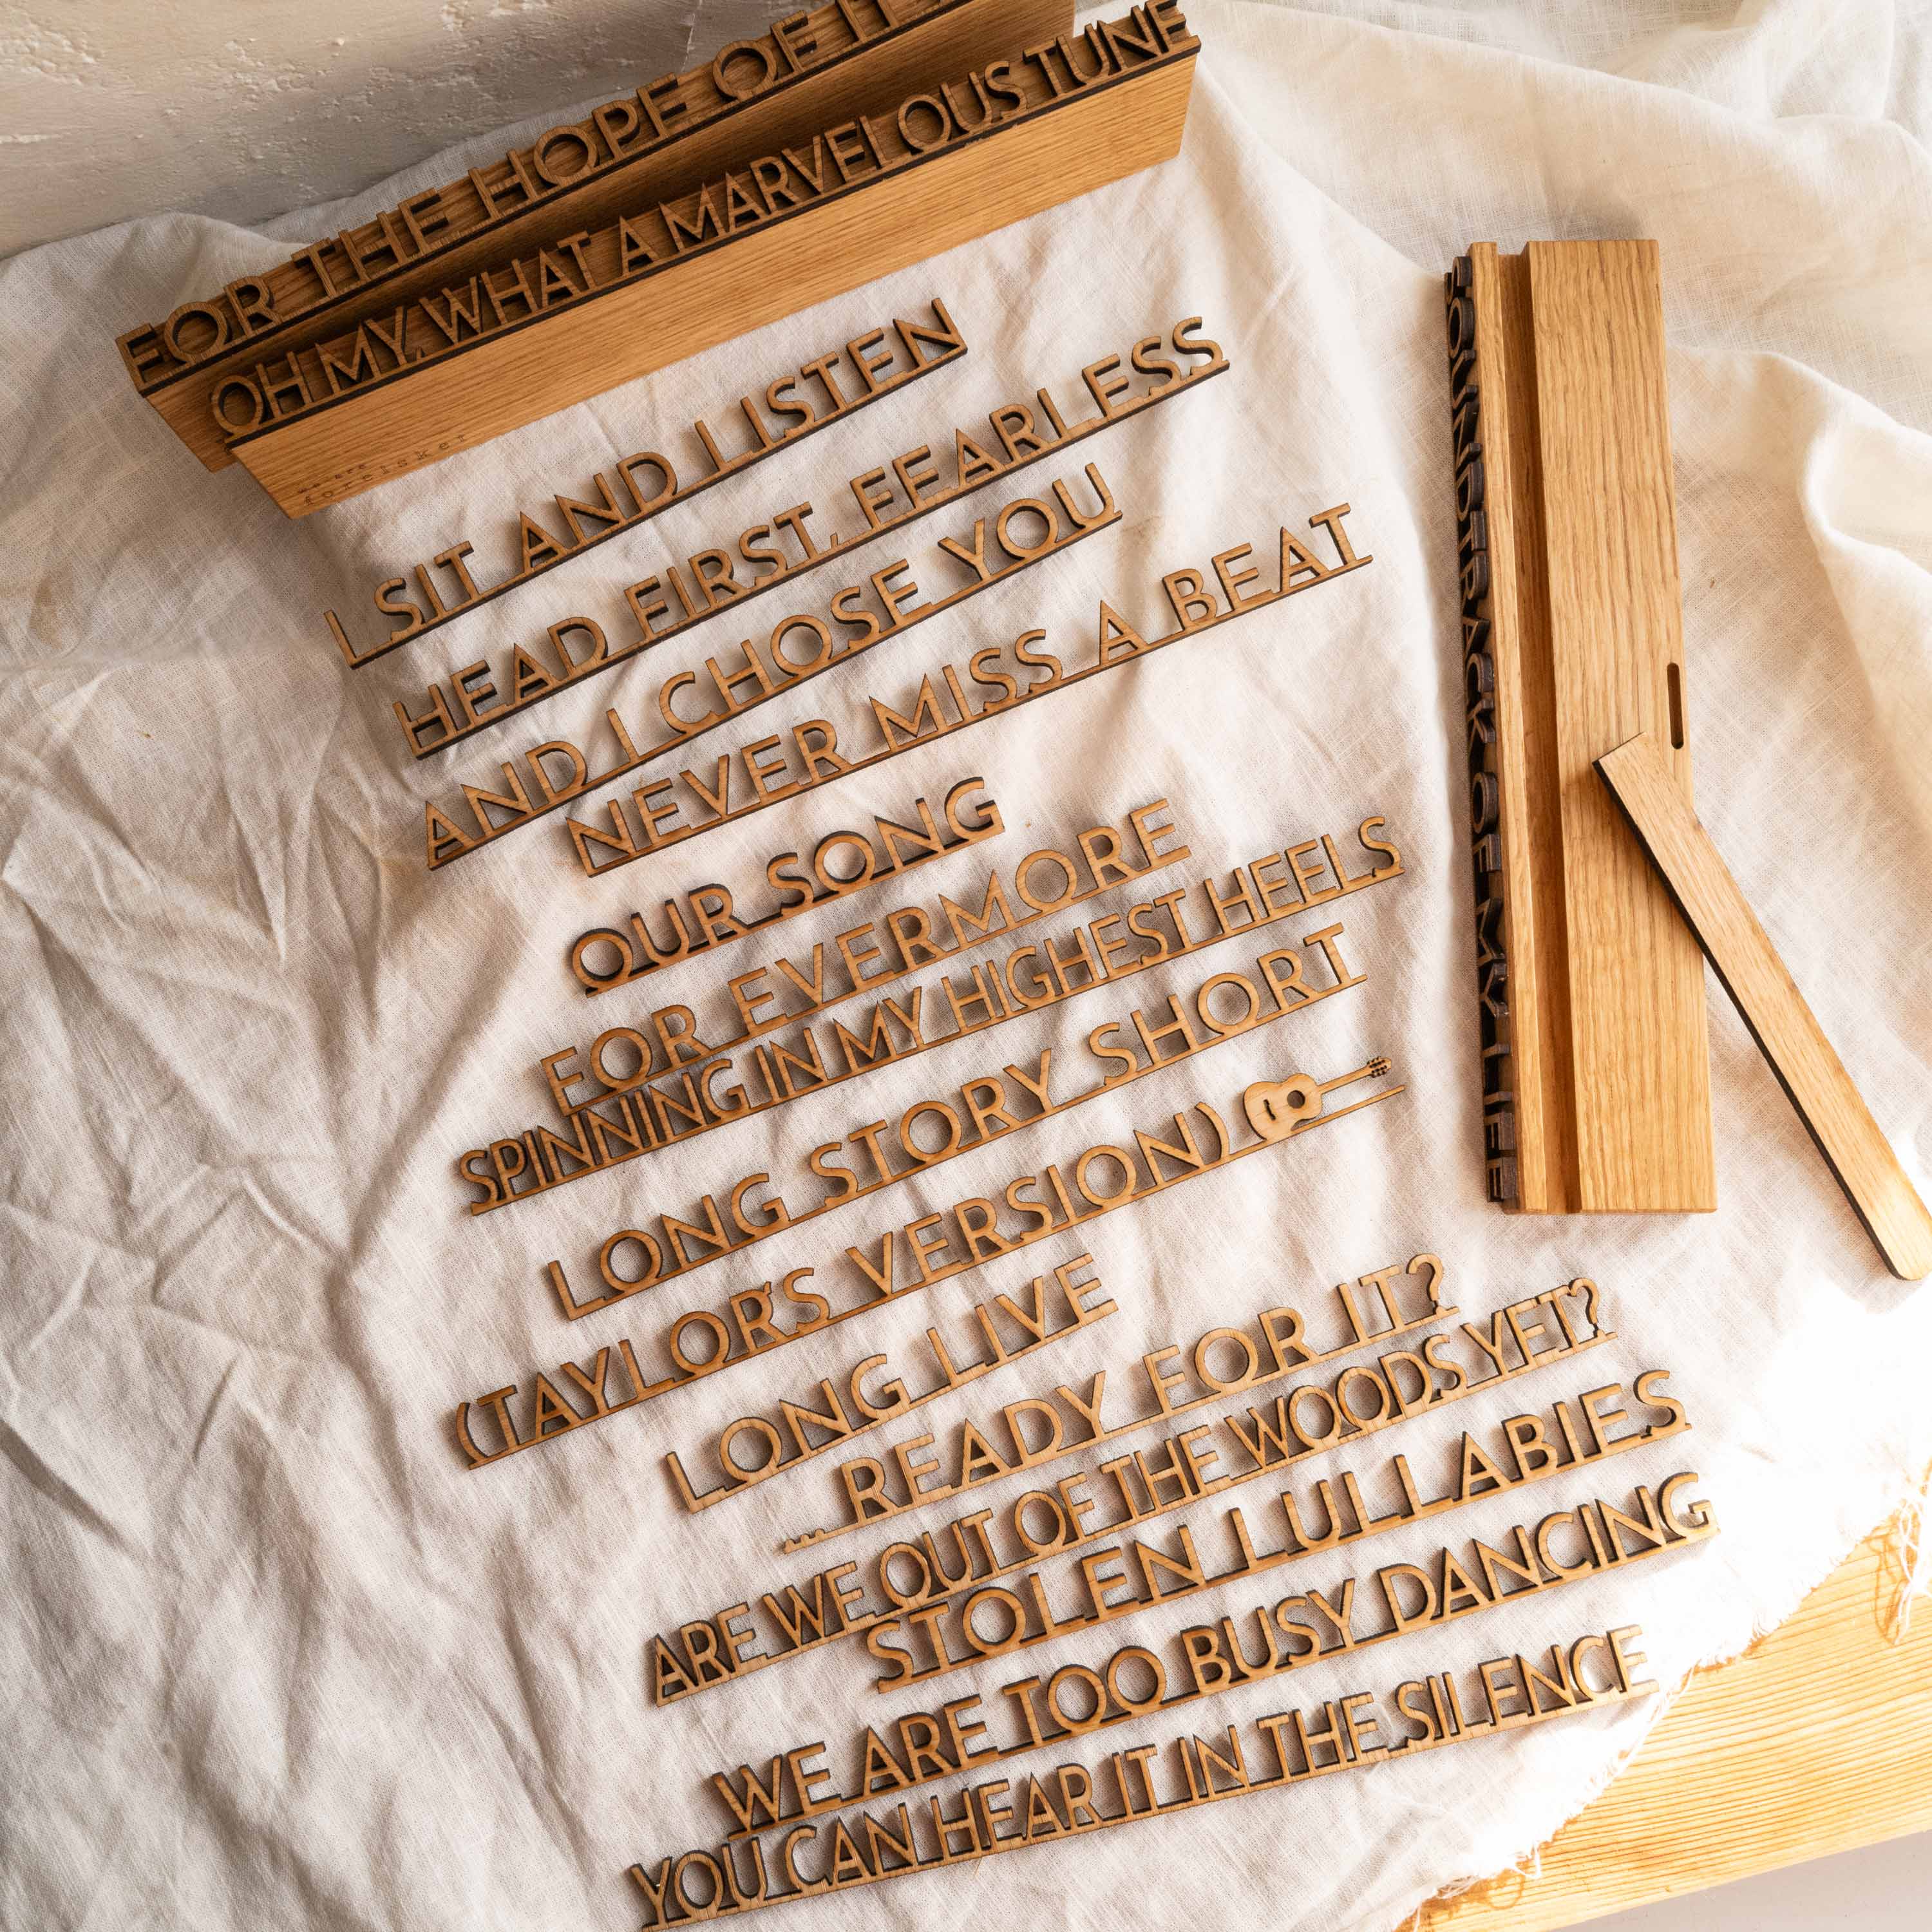 FOR THE HOPE OF IT
OH MY, WHAT A MARVELOUS TUNE
I SIT AND LISTEN
HEAD FIRST, FEARLESS
AND I CHOSE YOU
NEVER MISS A BEAT
OUR SONG
FOR EVERMORE
SPINNING IN MY HIGHEST HEELS
LONG STORY SHORT
(TAYLOR'S VERSION)
LONG LIVE
READY FOR IT?
ARE WE OUT OF THE WOODS YET?
STOLEN LULLABIES
WE ARE TOO BUSY DANCING
YOU CAN HEAR IT IN THE SILENCE
SOUNDTRACK OF MY LIFE